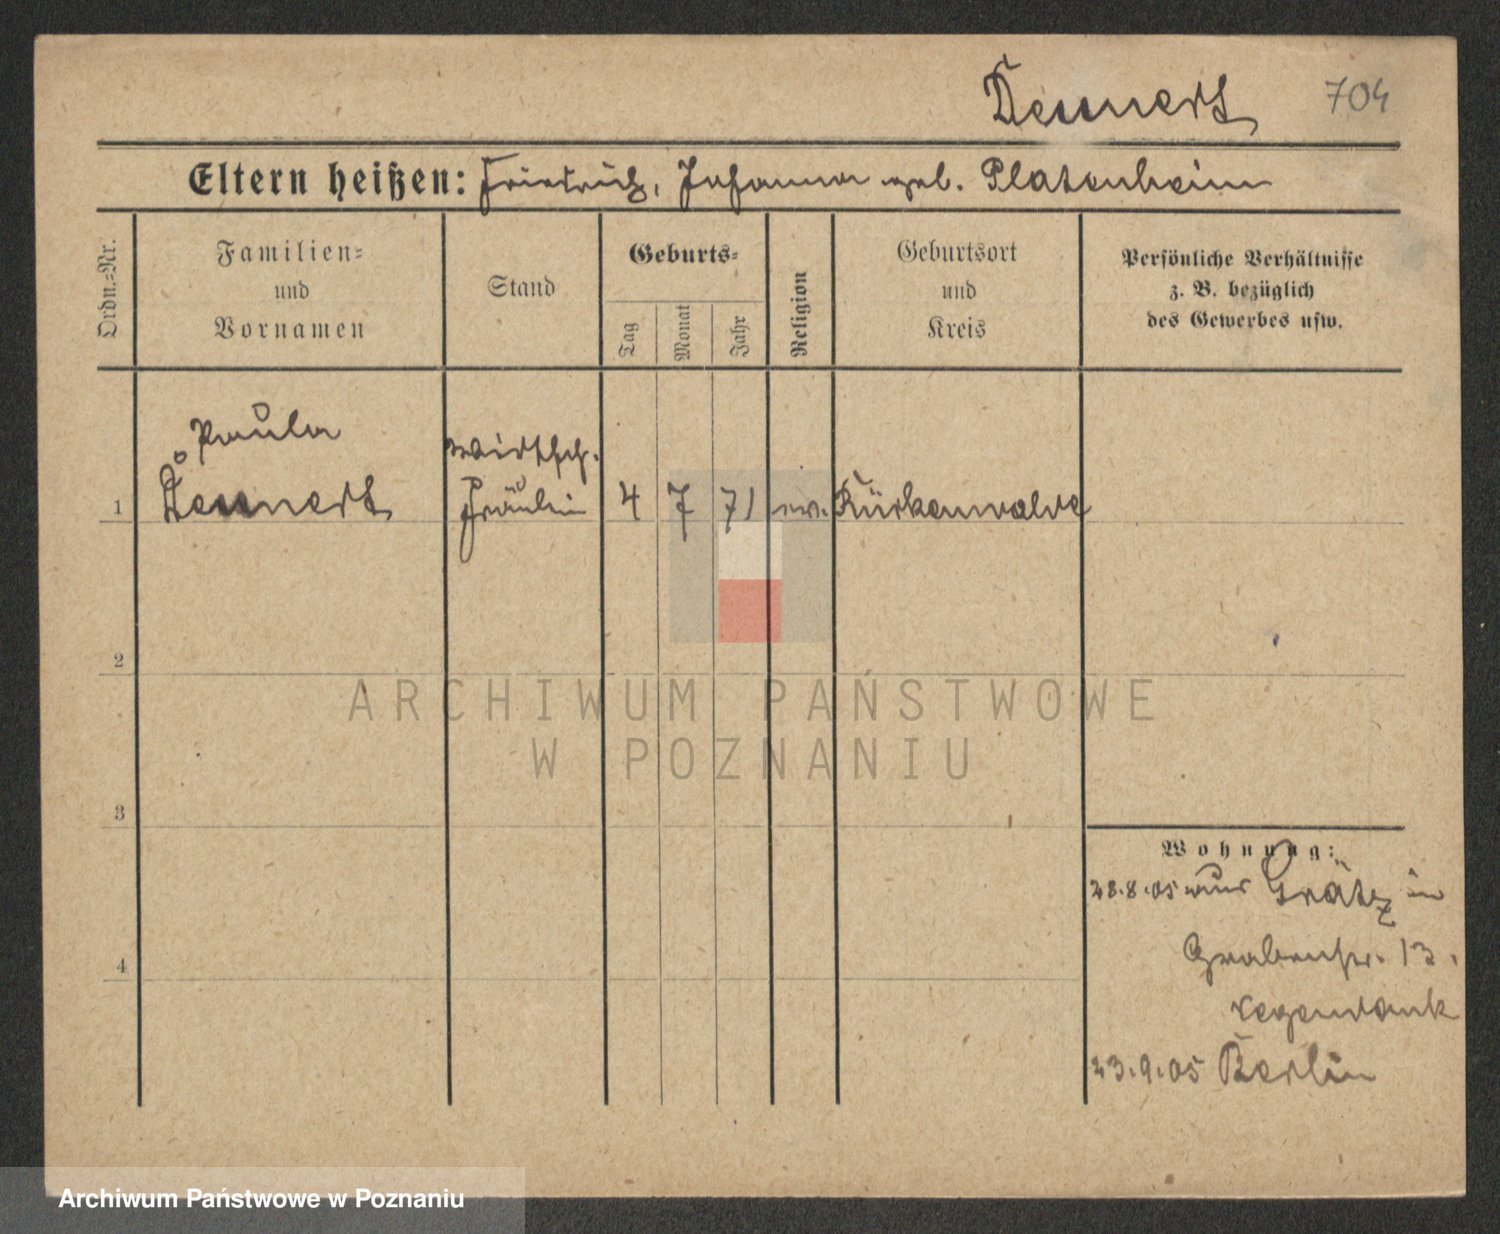 Dennert 704
Eltern heißen: Friedrich, Johanna geb. Platenheim
Ordn.-Nr.
Familien-
und
Vornamen
Stand
Geburts-
Tag
Monat
Jahr
Religion
Geburtsort
und
Kreis
Persönliche Verhältnisse
z. B. bezüglich
des Gewerbes usw.
Paula
Dennert
wirtsch.
Fräulein
1
4 7 71 ev.
2
3
4
Wohnung:
28.8.05 aus Grätz in
Grabenstr. 13.
Regendank
23.9.05 Berlin
ARCHIWUM PAŃSTWOWE
W POZNANIU
Archiwum Państwowe w Poznaniu